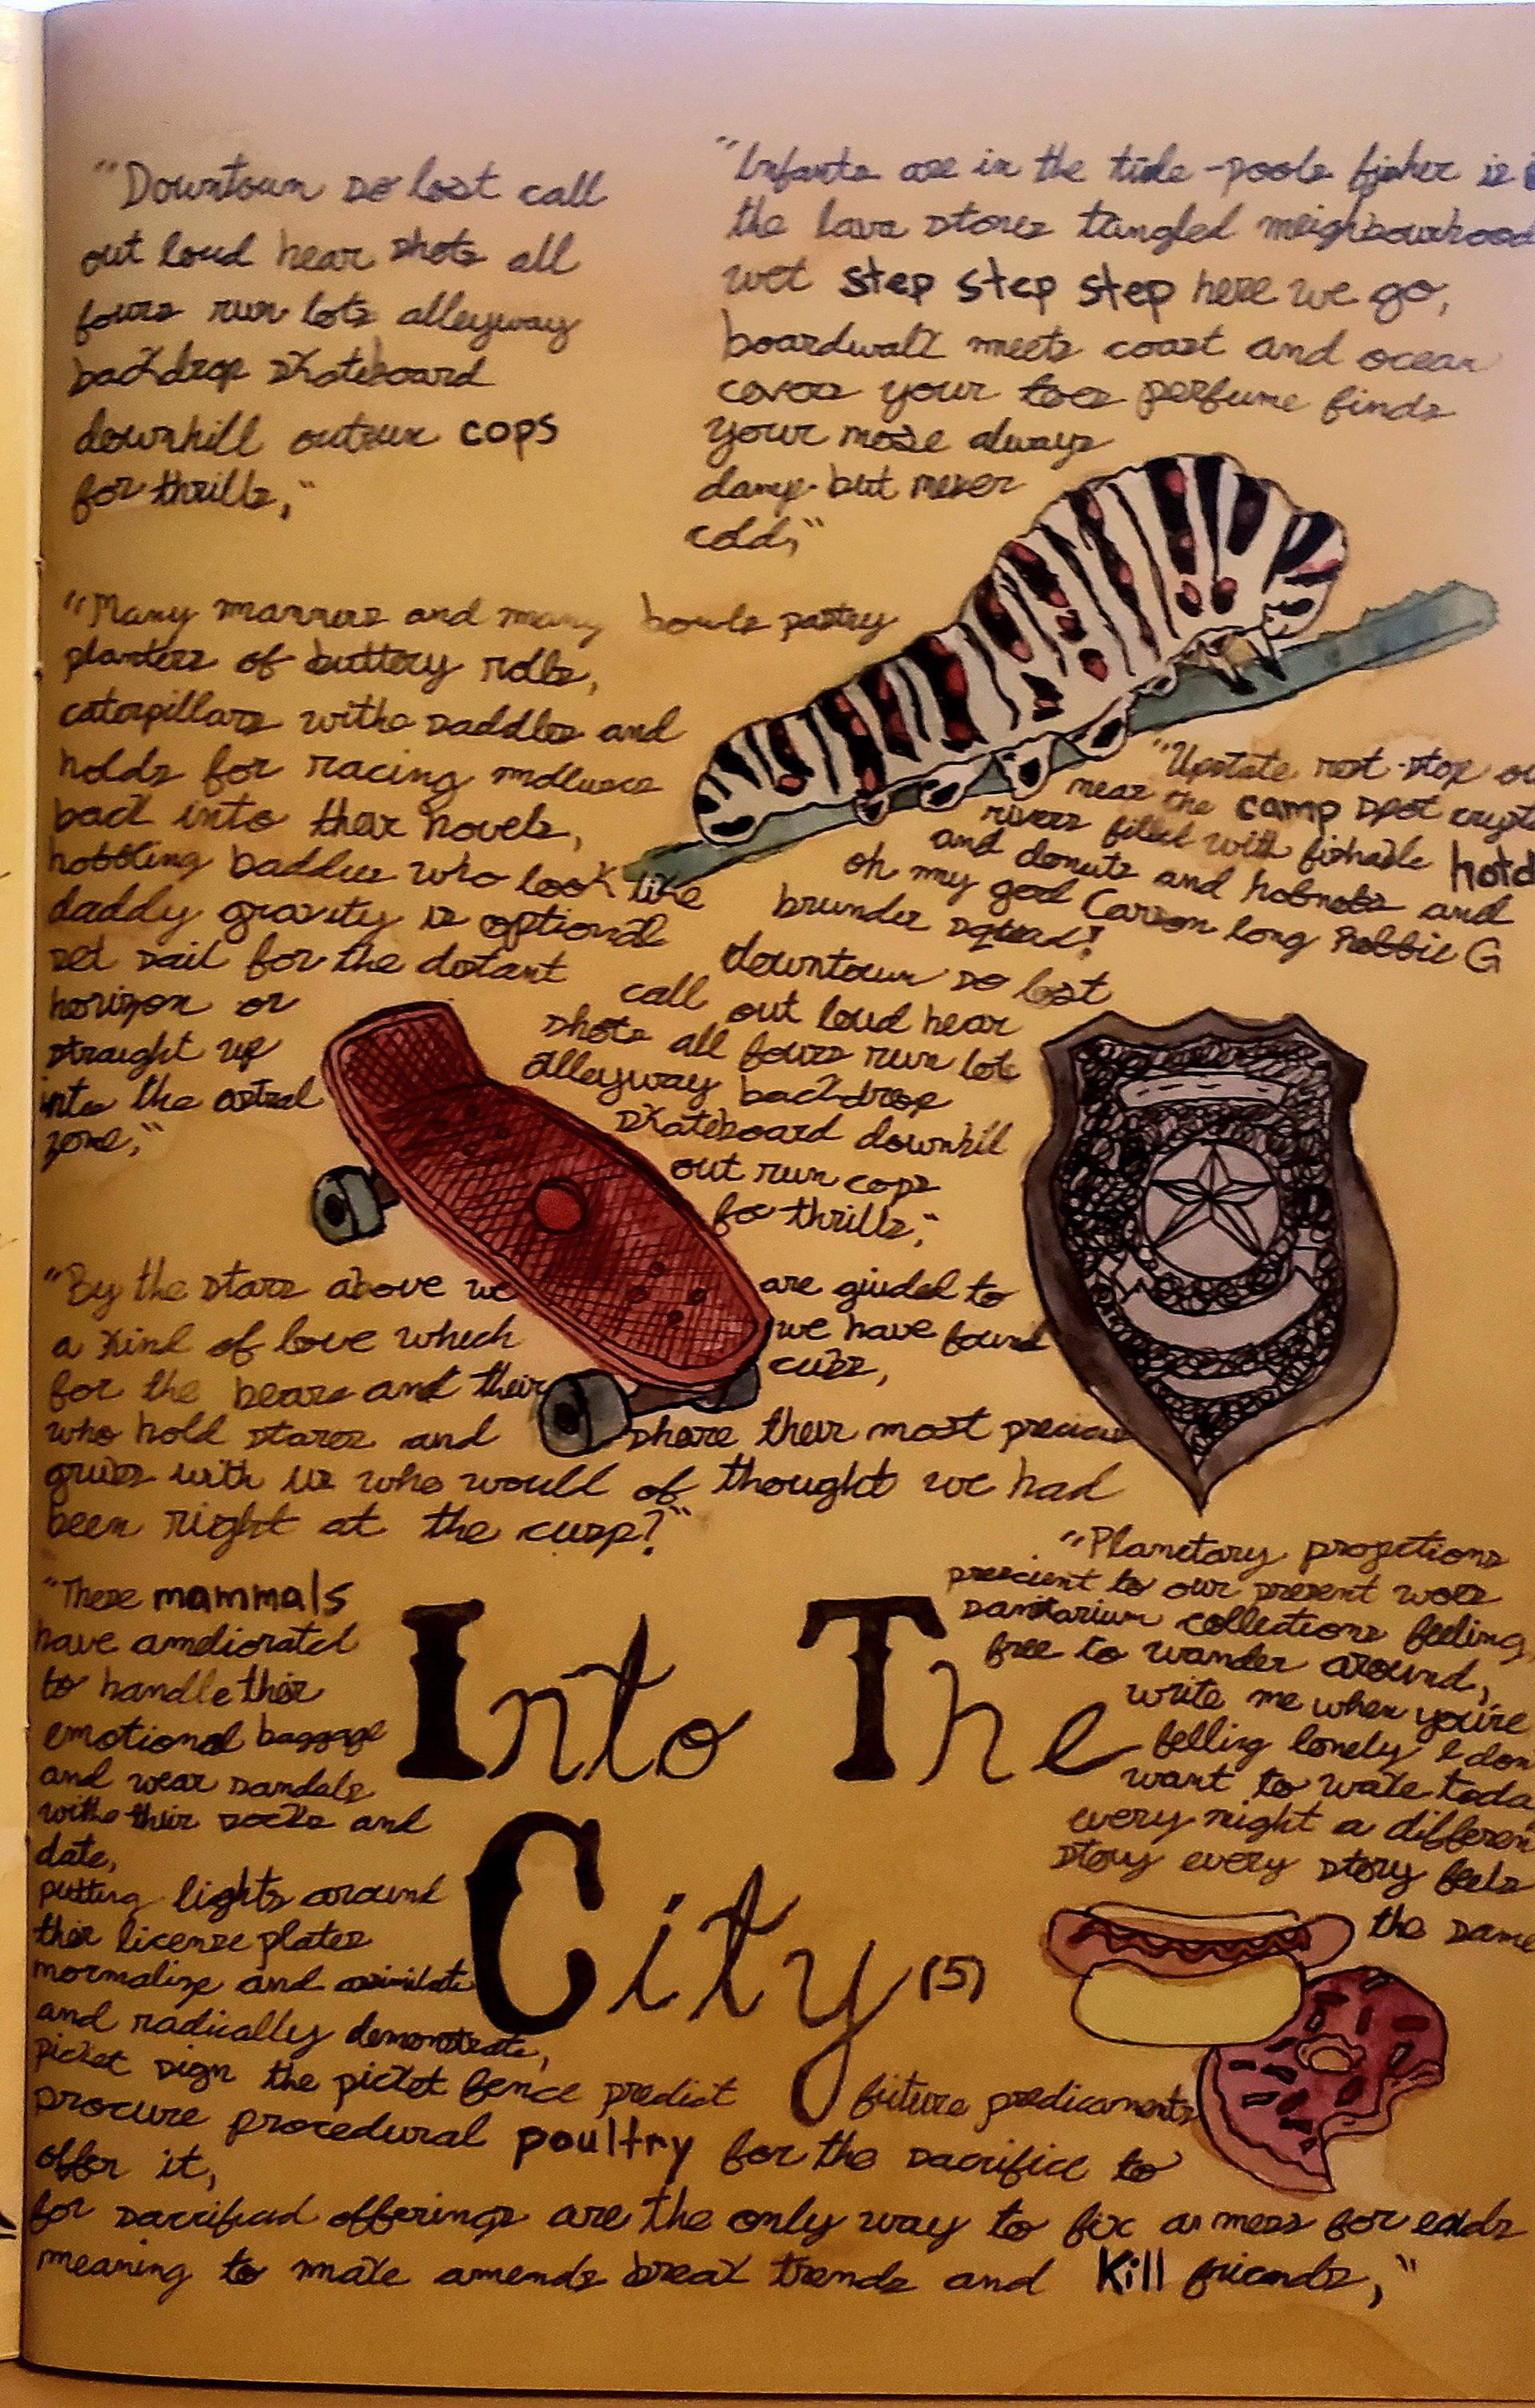 "Downtown so lost call
out loud hear shots all
fours run lots alleyway
backdrop skateboard
downhill outrun cops
for thrills,"
"Infants are in the tide-pools fisher is
the lava stones tangled neighbourhood
wet step step step here we go,
boardwalk meets coast and ocean
covers your toes perfume finds
your nose always
damp but never
cold,"
"Many manners and many bowls pastry
planters of buttery rolls,
caterpillars withe saddles and
holds for racing molluscs
back into their hovels,
hobbling baddies who look like
daddy gravity is optional
set sail for the distant
horizon or
straight up
into the astral
zone,"
"Upstate rest-stop
near the camp spot
rivers filled with fishable
and donuts and hobnobs and
oh my god Carson long Robbie G
brunder squad!
downtown so lost
call out loud hear
shots all fours run lots
alleyway backdrop
skateboard downhill
out run cops
for thrills,"
"By the stars above we are giuded to
a kind of love which we have found
for the bears and their cubs,
who hold stares and share their most precious
grubs with us who would of thought we had
been right at the cusp?"
"These mammals
have ameliorated
to handle their
emotional baggage
and wear sandals
withe their socks and
date,
putting lights around
their license plates
normalize and assimilate
and radically demonstrate,
picket sign the picket fence predict future predicaments
procure procedural poultry for the sacrifice to
offer it,
for sacrificial offerings are the only way to fix a mess for
meaning to make amends break trends and Kill friends,"
"Planetary projections
prescient to our present woes
sanitarium collections feeling
free to wander around,
write me when you're
felling lonely I
want to wake
every night a
story every story feels
the same
Into The
City (5)